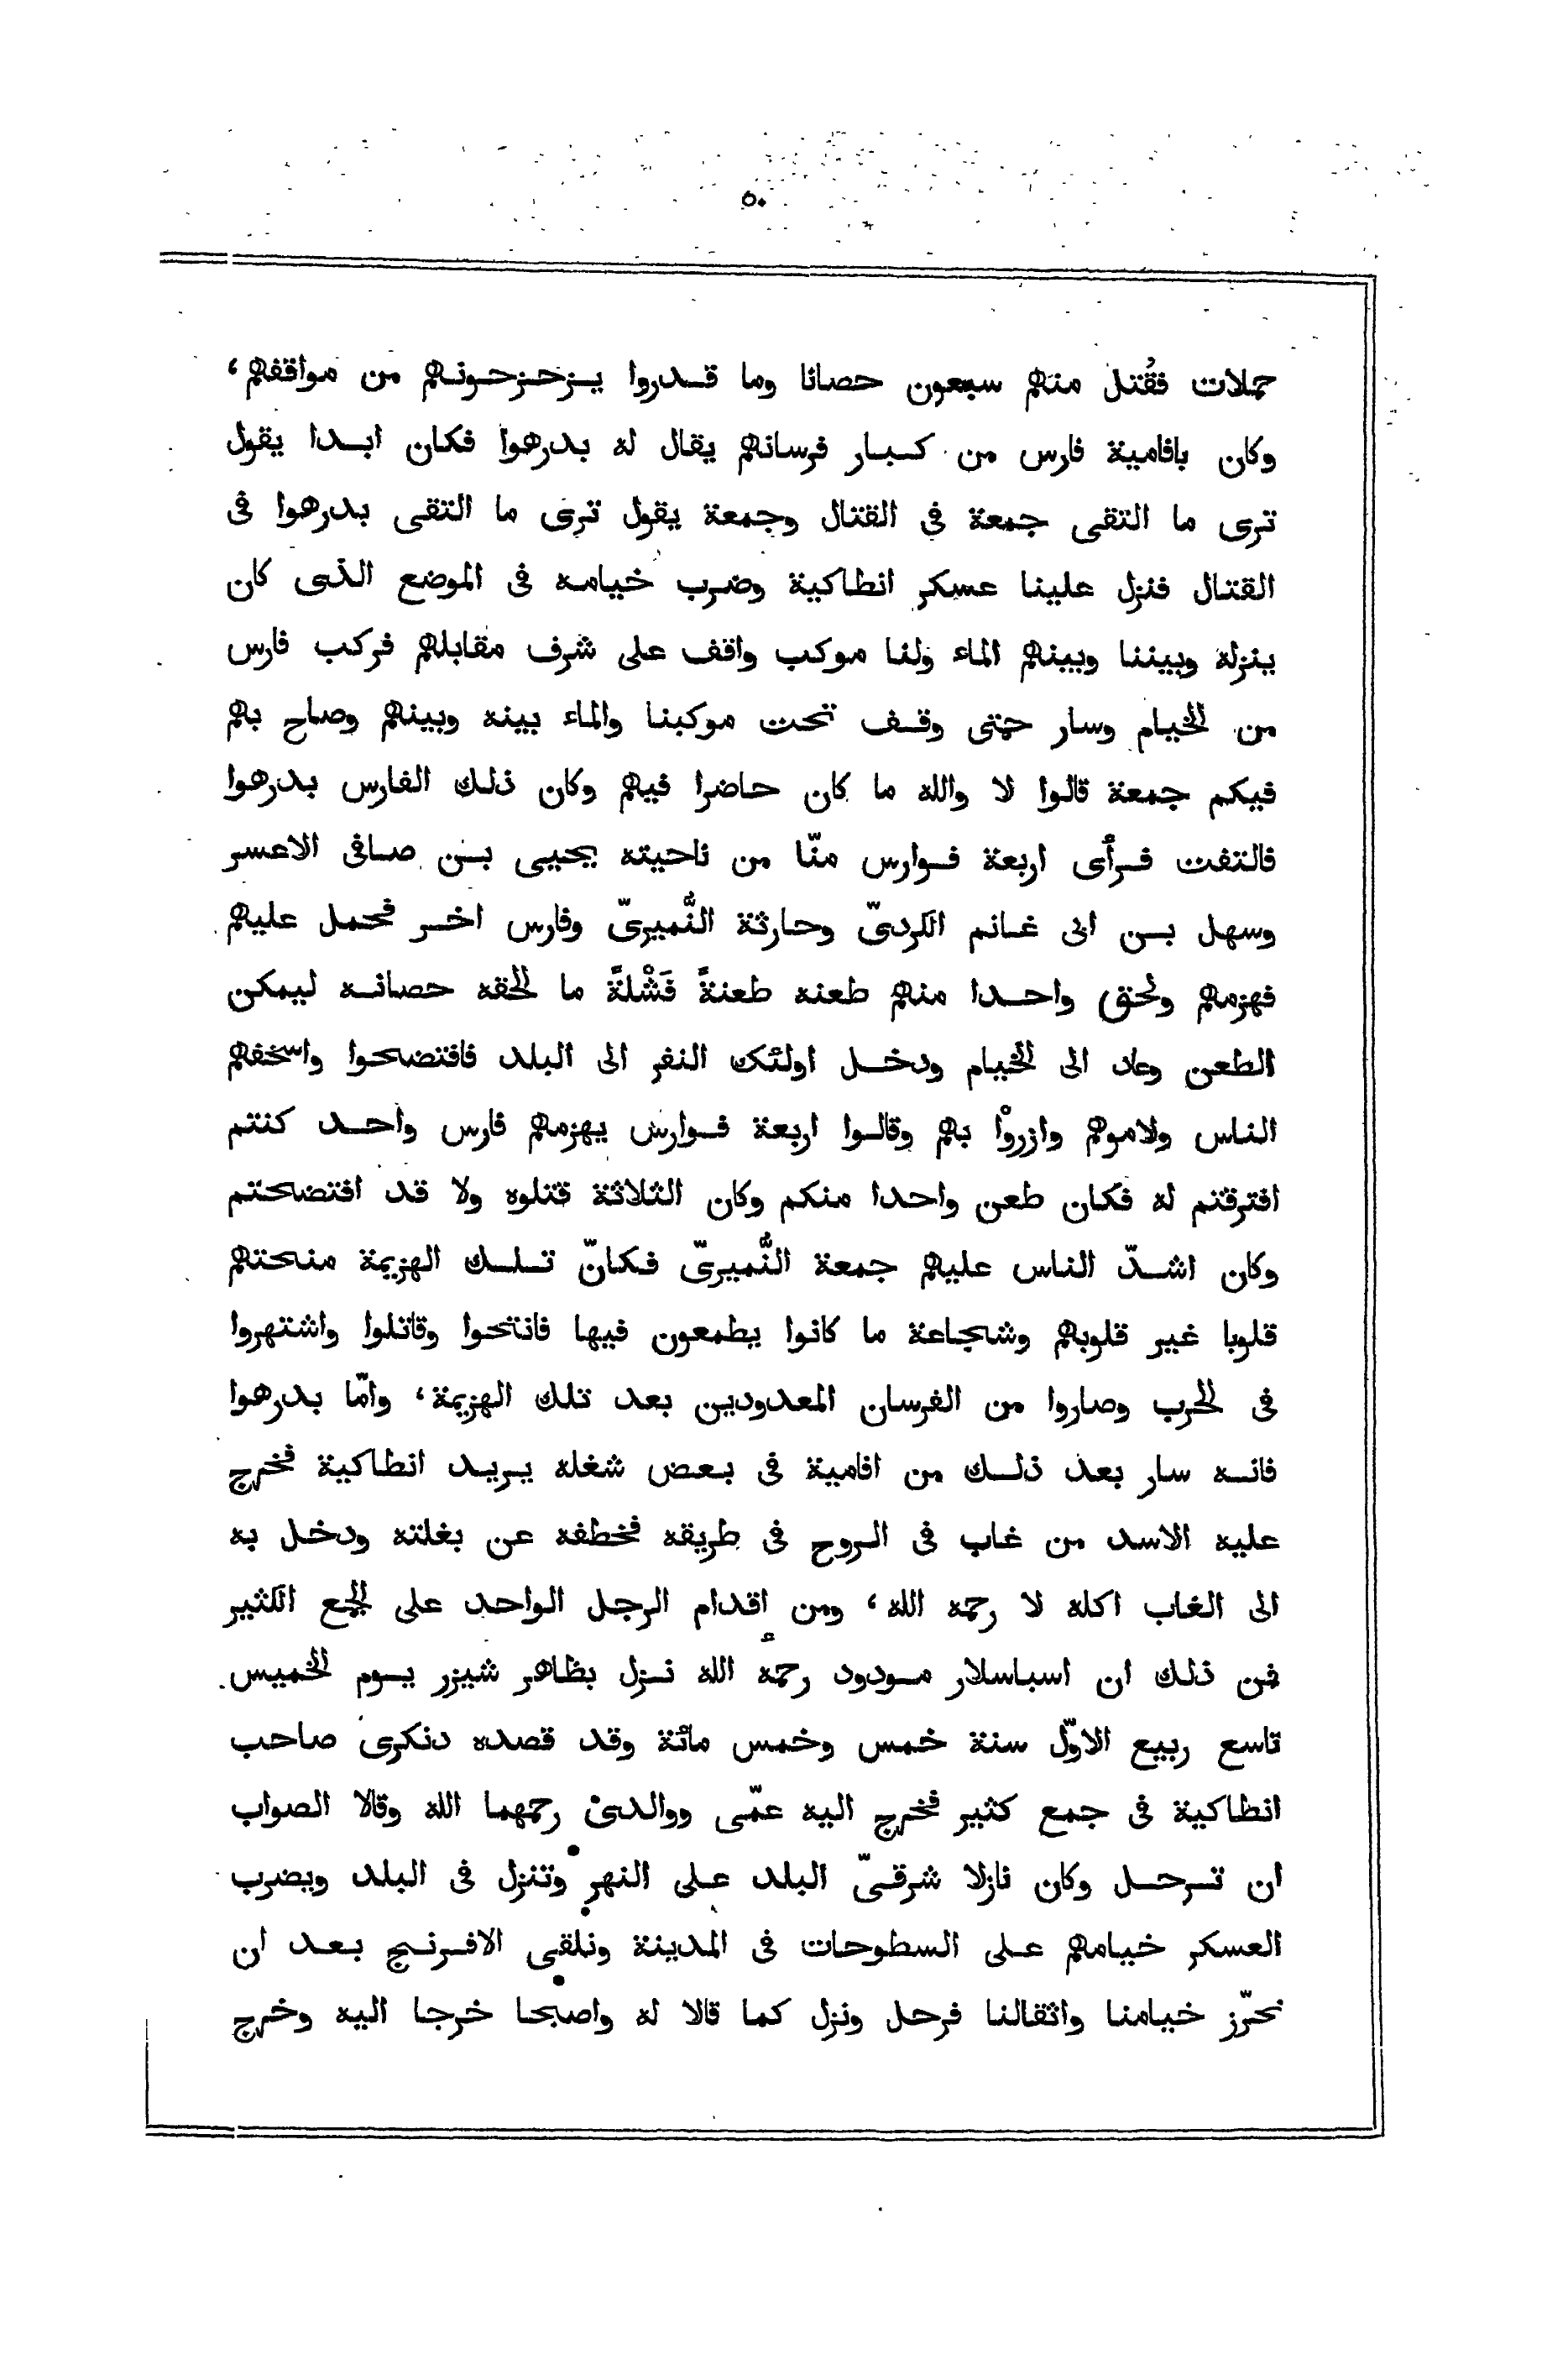 ٥٠
حملات فقُتل منهم سبعون حصانا وما قدروا يزحزحونهم من مواقفهم،
وكان بافامية فارس من كبار فرسانهم يقال له بدرهوا فكان ابدا يقول
ترى ما التقى جمعة فى القتال وجمعة يقول ترى ما التقى بدرهوا فى
القتال فنزل علينا عسكر انطاكية وضرب خيامه فى الموضع الذى كان
ينزله وبيننا وبينهم الماء ولنا موكب واقف على شرف مقابلهم فركب فارس
من الخيام وسار حتى وقف تحت موكبنا والماء بينه وبينهم وصاح بهم
فيكم جمعة قالوا لا والله ما كان حاضرا فيهم وكان ذلك الفارس بدرهوا
فالتفت فرأى اربعة فوارس منّا من ناحيته يحيى بن صافى الاعسر
وسهل بن ابى غانم الكردىّ وحارثة النُّميرىّ وفارس اخر فحمل عليهم
فهزمهم ولحق واحدا منهم طعنه طعنةً فَشْلةً ما لحقه حصانه ليمكن
الطعن وعاد الى الخيام ودخل اولئك النفر الى البلد فافتضحوا واسخفهم
الناس ولاموهم وازروْا بهم وقالوا اربعة فوارس يهزمهم فارس واحد كنتم
افترقتم له فكان طعن واحدا منكم وكان الثلاثة قتلوه ولا قد افتضحتم
وكان اشدّ الناس عليهم جمعة النُّميرىّ فكانّ تلك الهزيمة منحتهم
قلوبا غير قلوبهم وشجاعة ما كانوا يطمعون فيها فانتخوا وقاتلوا واشتهروا
فى الحرب وصاروا من الفرسان المعدودين بعد تلك الهزيمة، وامّا بدرهوا
فانه سار بعد ذلك من افامية فى بعض شغله يريد انطاكية فخرج
عليه الاسد من غاب فى الروح فى طريقه فخطفه عن بغلته ودخل به
الى الغاب اكله لا رحمه الله، ومن إقدام الرجل الواحد على الجمع الكثير
فمن ذلك ان اسباسلار مودود رحمه الله نزل بظاهر شيزر يوم الخميس
تاسع ربيع الاوّل سنة خمس وخمس مائة وقد قصده دنكرى صاحب
انطاكية فى جمع كثير فخرج اليه عمّى ووالدى رحمهما الله وقالا الصواب
ان ترحل وكان نازلا شرقىّ البلد على النهر وتنزل فى البلد ويضرب
العسكر خيامهم على السطوحات فى المدينة ونلقى الافرنج بعد ان
نحرّز خيامنا واثقالنا فرحل ونزل كما قالا له واصبحا خرجا اليه وخرج